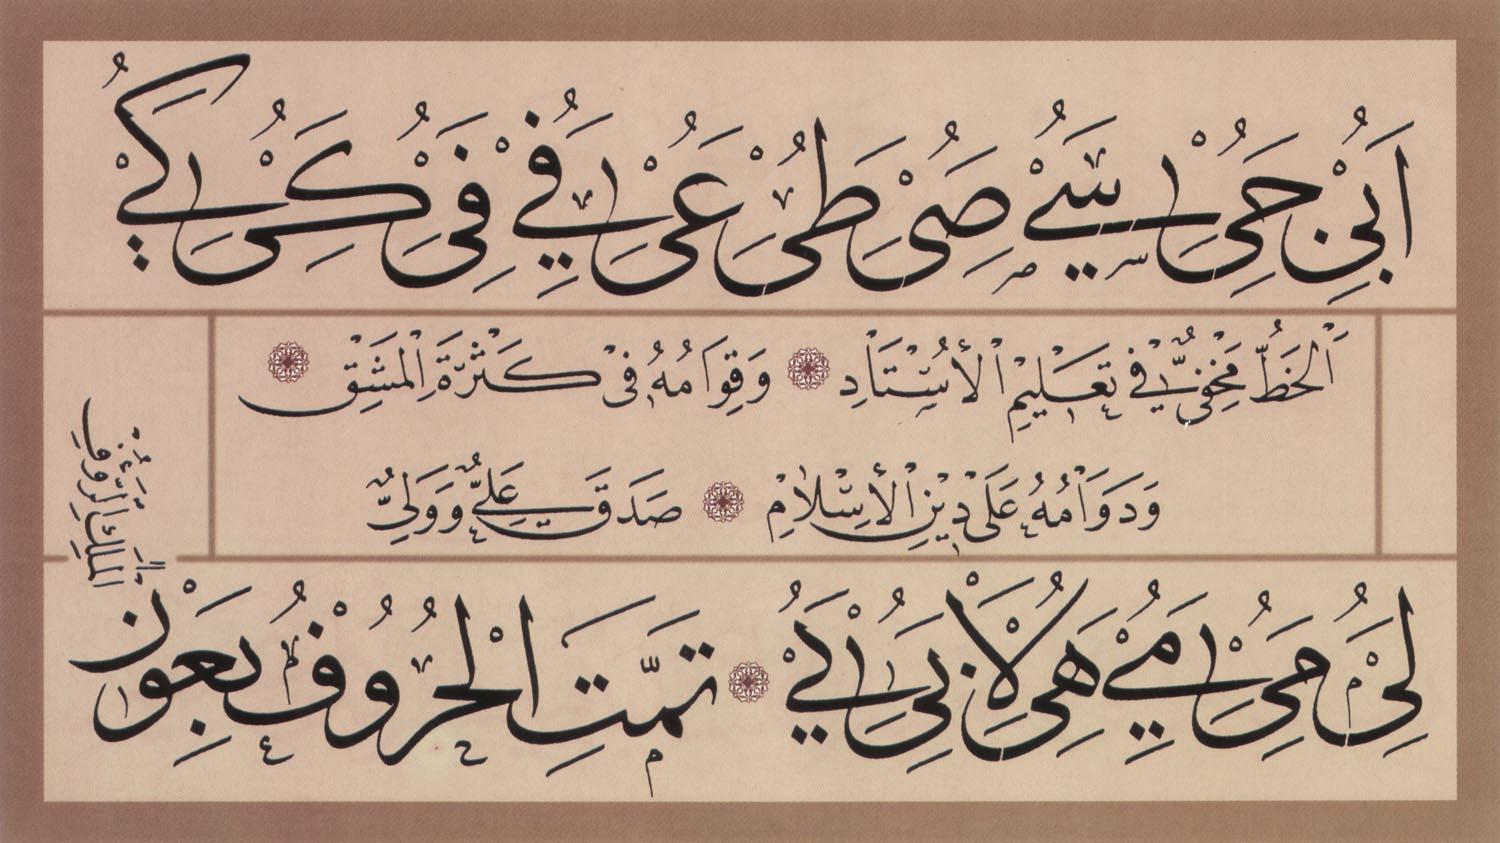 اَبُىْ حُىْ سُىْ صُىْ طُىْ عُىْ فُىْ فُىْ كُىْ كُىْ
اَلْخَطُّ مَخْفِىٌّ فِى تَعْلِيْمِ الْأُسْتَاذِ وَقِوَامُهُ فِىْ كَثْرَةِ الْمَشْقِ
وَدَوَامُهُ عَلَى دِيْنِ الْإِسْلَامِ صَدَقَ عَلِىٌّ وَوَلِىٌّ
لُىْ مُىْ مُىْ هُىْ لَاْ ىُىْ يُىْ تَمَّتِ الْحُرُوْفُ بِعَوْنِ
اللهِ الْمَلِكِ الرَّؤُفِ